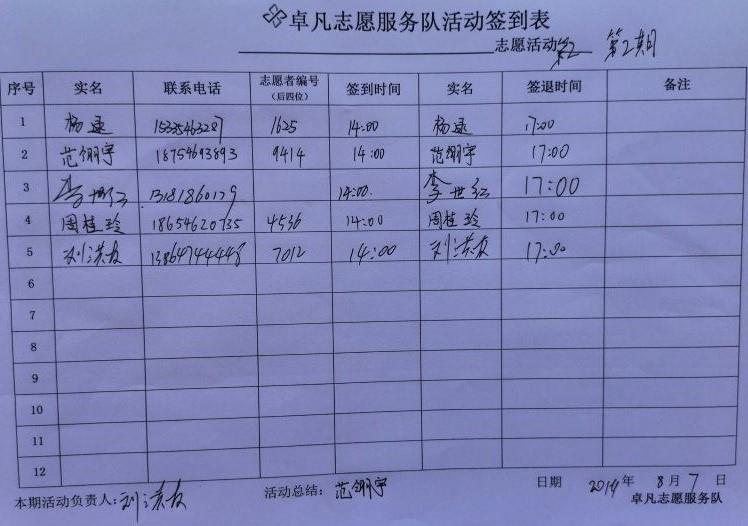 卓凡志愿服务队活动签到表
志愿活动 第2 第2期
序号 实名 联系电话 志愿者编号(后四位) 签到时间 实名 签退时间 备注
1 杨逯 15335463287 1625 14:00 杨逯 17:00
2 范翎宇 18754693893 9414 14:00 范翎宇 17:00
3 李世红 13181860129 14:00. 李世红 17:00
4 周桂玲 18654620735 4536 14:00 周桂玲 17:00
5 刘洪友 13864744448 7012 14:00 刘洪友 17:00
6
7
8
9
10
11
12
本期活动负责人:刘洪友 活动总结:范翎宇 日期 2014年 8月7日
卓凡志愿服务队